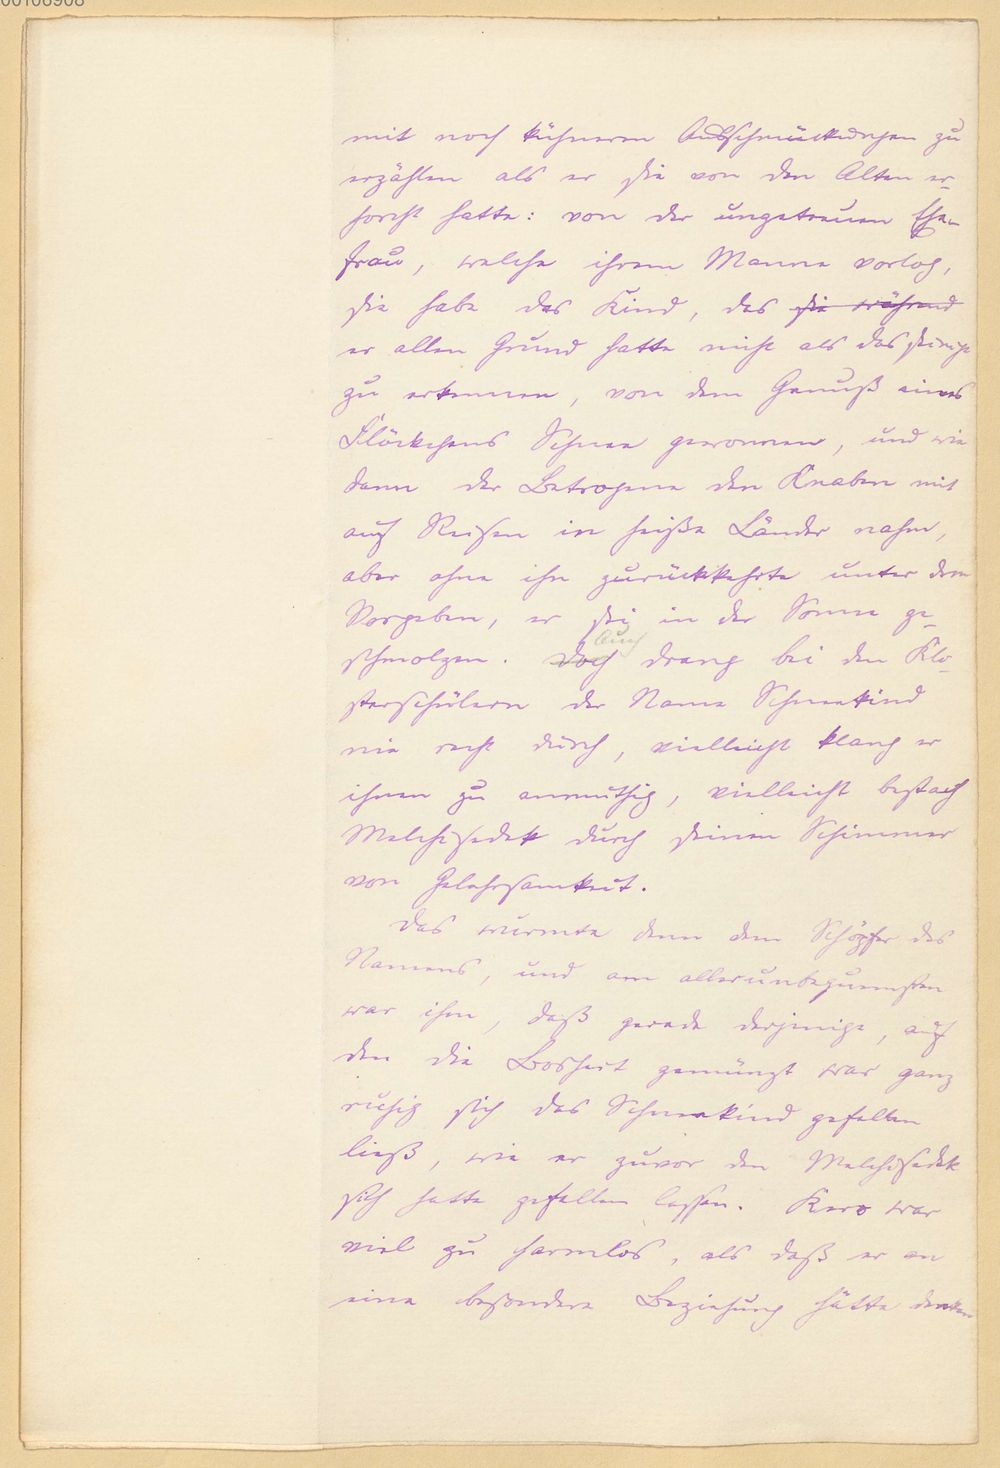 00106908
mit noch kühneren Ausschmückungen zu
erzählen als er sie von den Alten er-
horcht hatte: von der ungetreuen Ehe-
frau, welche ihrem Manne vorlog,
sie habe das Kind, das sie während
er allen Grund hatte nicht als das seinige
zu erkennen, von dem Genuß eines
Flöckchens Schnee gewonnen, und wie
dann der Betrogene den Knaben mit
auf Reisen in heiße Länder nahm,
aber ohne ihn zurückkehrte unter dem
Vorgeben, er sei in der Sonne ge-
Auch
schmolzen. Doch drang bei den Klo-
sterschülern der Name Schneekind
nie recht durch, vielleicht klang er
ihnen zu anmuthig, vielleicht bestach
Melchisedek durch seinen Schimmer
von Gelahrsamkeit.
Das wurmte denn den Schöpfer des
Namens, und am allerunbequemsten
war ihm, daß gerade derjenige, auf
den die Bosheit gemünzt war ganz
ruhig sich das Schneekind gefallen
ließ, wie er zuvor den Melchisedek
sich hatte gefallen lassen. Kero war
viel zu harmlos, als daß er an
eine besondere Beziehung hätte denken